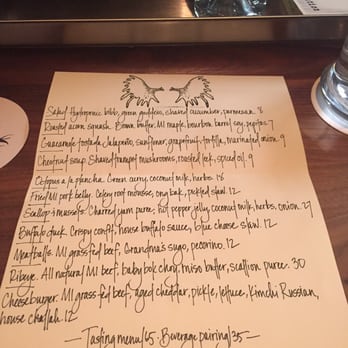 Salad. Hydroponic bibb, green goddess, shaved cucumber, parmesan. 8
Roasted acorn squash. Brown butter, MI maple, bourbon barrel soy, pepitas 7
Guacamole tostada. Jalapeño, sunflower, grapefruit, tortilla, marinated onion 9
Chestnut soup. Shaved trumpet mushrooms, roasted leek, spiced oil. 9
Octopus a la plancha. Green curry, coconut milk, herbs 16
Fried MI pork belly. Celery root mousse, pickled slaw. 12
Scallop & mussels. Charred yam puree, hot pepper jelly, coconut milk, herbs, onion 27
Buffalo duck. Crispy confit, house buffalo sauce, blue cheese slaw. 12
Meatballs. MI grass fed beef, Grandma's sugo, pecorino. 12
Ribeye. All natural MI beef, baby bok choy, miso butter, scallion puree. 30
Cheeseburger. MI grass fed beef, aged cheddar, pickle, lettuce, kimchi Russian,
house challah. 12
— Tasting menu/65 · Beverage pairing/35 —